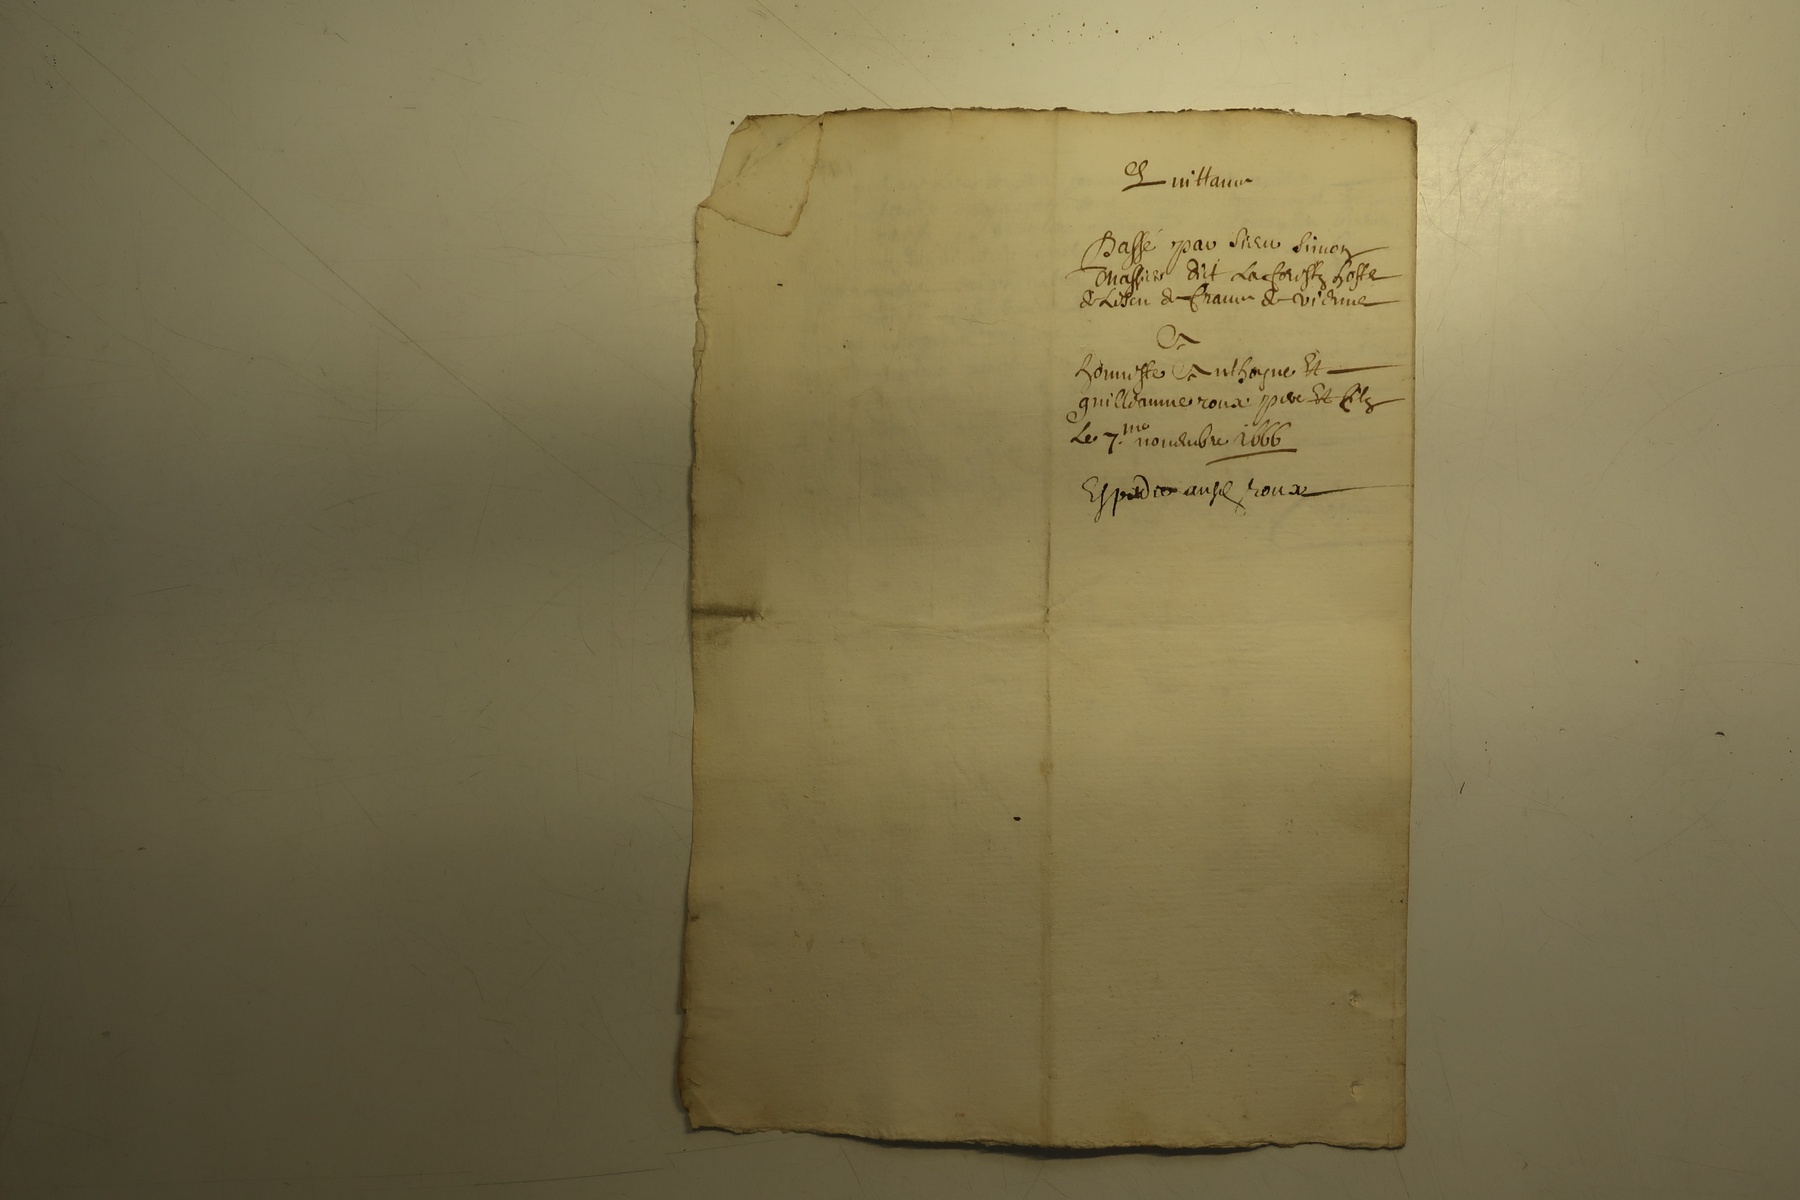 Quittance
Passé par sieur Simon
Massier dit Laforestz hoste
de Lescu de france de vienne
A
honneste Anthoyne Et
guilleaume roux pere Et filz
Le 7.me novembre 1666
roux